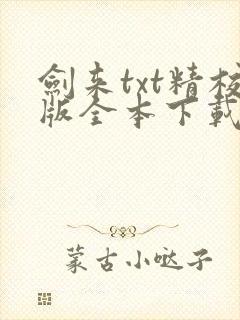 劍来txt精校
版全本下載
蒙古小哒子